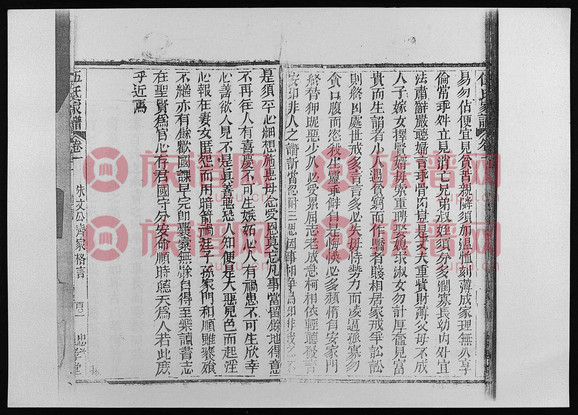 易勿佔便宜見貧苦親鄰須加溫恤刻薄成家理無久享
倫常乖舛立見消亡兄弟叔姪須分多潤寡長幼內外宜
法肅辭嚴聽婦言乖骨肉豈是丈夫重貲財薄父母不成
人子嫁女擇賢婿毋索重聘娶媳求淑女勿計厚奩見富
貴而生諂者小 過貧窮而作驕 者賤 相居家戒爭訟訟
則終凶處世戒多言言多必失毋恃勢力而凌逼孤寡勿
貪口腹而恣 生 乖僻自是悔 必多頹惰自安家
終 狎 惡少久必受累屈志老成 相依輕聽發言
安知非人之譖 當忍耐三思因事相爭 知非 之不
是須平心細想施惠毋念受恩莫忘凡事當留餘地得意
不再往人有喜慶不可生嫉妬心人有禍患不可生欣幸
心善欲人見不是真善惡恐人知便是大惡見色而起淫
心報在妻女匿怨而用暗箭禍延子孫家門和順雖饔飧
不繼亦有餘歡國課早完即囊橐無餘自得至樂讀書志
在聖賢為官心存君國守分安命順時聽天為人若此庶
乎近焉
伍氏家譜 卷一 朱文公齊家格言
族譜网
族譜网
族譜网
族譜网